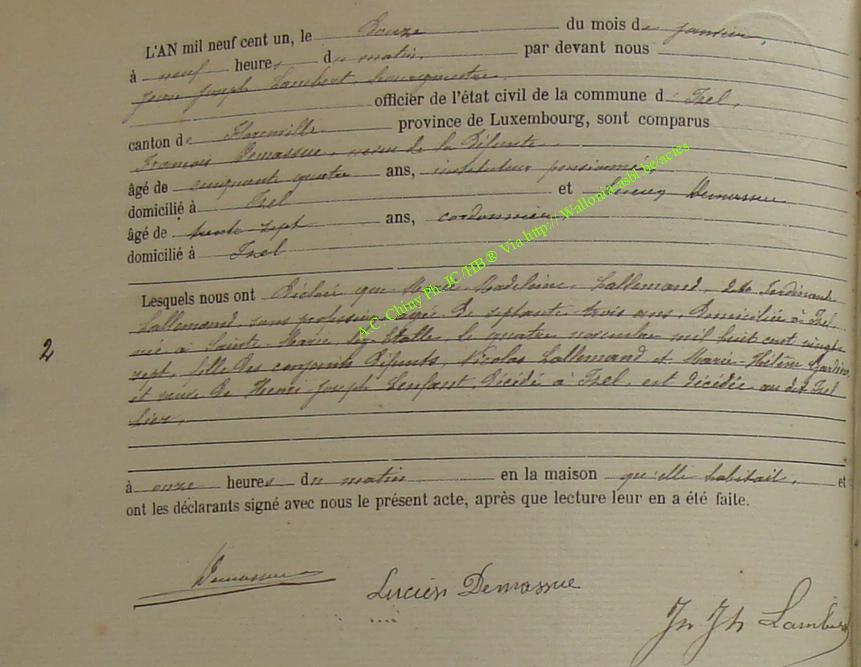 L'AN mil neuf cent un, le Douze du mois de janvier,
à neuf heures du matin, par devant nous
Jean Joseph Lambert, bourgmestre
officier de l'état civil de la commune d' Izel,
canton de Florenville province de Luxembourg, sont comparus
François Demassue, neveu de la Défunte
âgé de cinquante quatre ans, instituteur pensionné
domicilié à Izel et Lucien Demassue
âgé de trente-sept ans, cordonnier
domicilié à Izel
Lesquels nous ont Déclaré que Marie Madeleine Lallemand, dite Ferdinande
Lallemand, sans profession, âgée de septante-trois ans, Domiciliée à Izel
née à Sainte Marie, sy Etalle, le quatre novembre mil huit cent vingt
sept, fille des conjoints Défunts Nicolas Lallemand et Marie-Hélène
et veuve de Henri-Joseph Lenfant, Décédé à Izel, est décédée au dit Izel
hier,
2
à onze heures du matin en la maison qu'elle habitait, et
ont les déclarants signé avec nous le présent acte, après que lecture leur en a été faite.
Demassue
Lucien Demassue
Jn Jh Lambert
A.C. Chiny Ph. JC/HB® Via http://Wallonia-asbl.be/actes